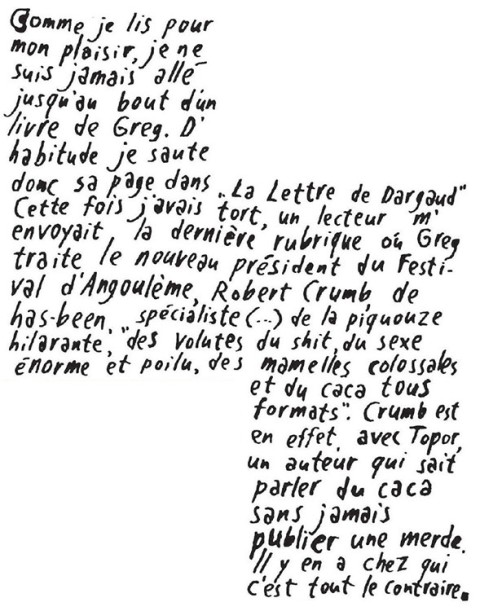 Comme je lis pour
mon plaisir, je ne
suis jamais allé
jusqu'au bout d'un
livre de Greg. D'
habitude je saute
donc sa page dans „La Lettre de Dargaud"
Cette fois j'avais tort, un lecteur m'
envoyait la dernière rubrique où Greg
traite le nouveau président du Festi-
val d'Angoulème, Robert Crumb, de
has-been, "spécialiste (...) de la piquouze
hilarante, des volutes du shit, du sexe
énorme et poilu, des mamelles colossales
et du caca tous
formats". Crumb est
en effet, avec Topor,
un auteur qui sait
parler du caca
sans jamais
publier une merde.
Il y en a chez qui
c'est tout le contraire.